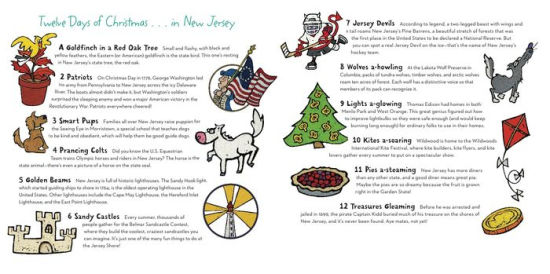 Twelve Days of Christmas . . . in New Jersey
A Goldfinch in a Red Oak Tree Small and flashy, with black and
yellow feathers, the Eastern (or American) goldfinch is the state bird. This one's nesting
in New Jersey's state tree, the red oak.
2 Patriots On Christmas Day in 1776, George Washington led
his army from Pennsylvania to New Jersey across the icy Delaware
River. The boats almost didn't make it, but Washington's soldiers
surprised the sleeping enemy and won a major American victory in the
Revolutionary War. Patriots everywhere cheered!
3 Smart Pups Families all over New Jersey raise puppies for
the Seeing Eye in Morristown, a special school that teaches dogs
to be kind and obedient, which will help them be good guide dogs.
4 Prancing Colts Did you know the U.S. Equestrian
Team trains Olympic horses and riders in New Jersey? The horse is the
state animal—there's even a picture of a horse on the state seal.
5 Golden Beams New Jersey is full of historic lighthouses. The Sandy Hook light,
which started guiding ships to shore in 1764, is the oldest operating lighthouse in the
United States. Other lighthouses include the Cape May Lighthouse, the Hereford Inlet
Lighthouse, and the East Point Lighthouse.
6 Sandy Castles Every summer, thousands of
people gather for the Belmar Sandcastle Contest,
where they build the coolest, craziest sandcastles you
can imagine. It's just one of the many fun things to do at
the Jersey Shore!
7 Jersey Devils According to legend, a two-legged beast with wings and
a tail roams New Jersey's Pine Barrens, a beautiful stretch of forests that was
the first place in the United States to be declared a National Reserve. But
you can spot a real Jersey Devil on the ice—that's the name of New Jersey's
hockey team.
8 Wolves a-howling At the Lakota Wolf Preserve in
Columbia, packs of tundra wolves, timber wolves, and arctic wolves
roam ten acres of forest. Each wolf has a distinctive voice so that
members of its pack can recognize it.
9 Lights a-glowing Thomas Edison had homes in both
Menlo Park and West Orange. This great genius figured out how
to improve lightbulbs so they were safe enough (and would keep
burning long enough) for ordinary folks to use in their homes.
10 Kites a-soaring Wildwood is home to the Wildwoods
International Kite Festival, where kite builders, kite flyers, and kite
lovers gather every summer to put on a spectacular show.
11 Pies a-steaming New Jersey has more diners
than any other state, and a good diner means great pie.
Maybe the pies are so good because the fruit is grown
right in the Garden State!
12 Treasures Gleaming Before he was arrested and
jailed in 1699, the pirate Captain Kidd buried much of his treasure on the shores of
New Jersey, and it's never been found. Aye matey, not yet!